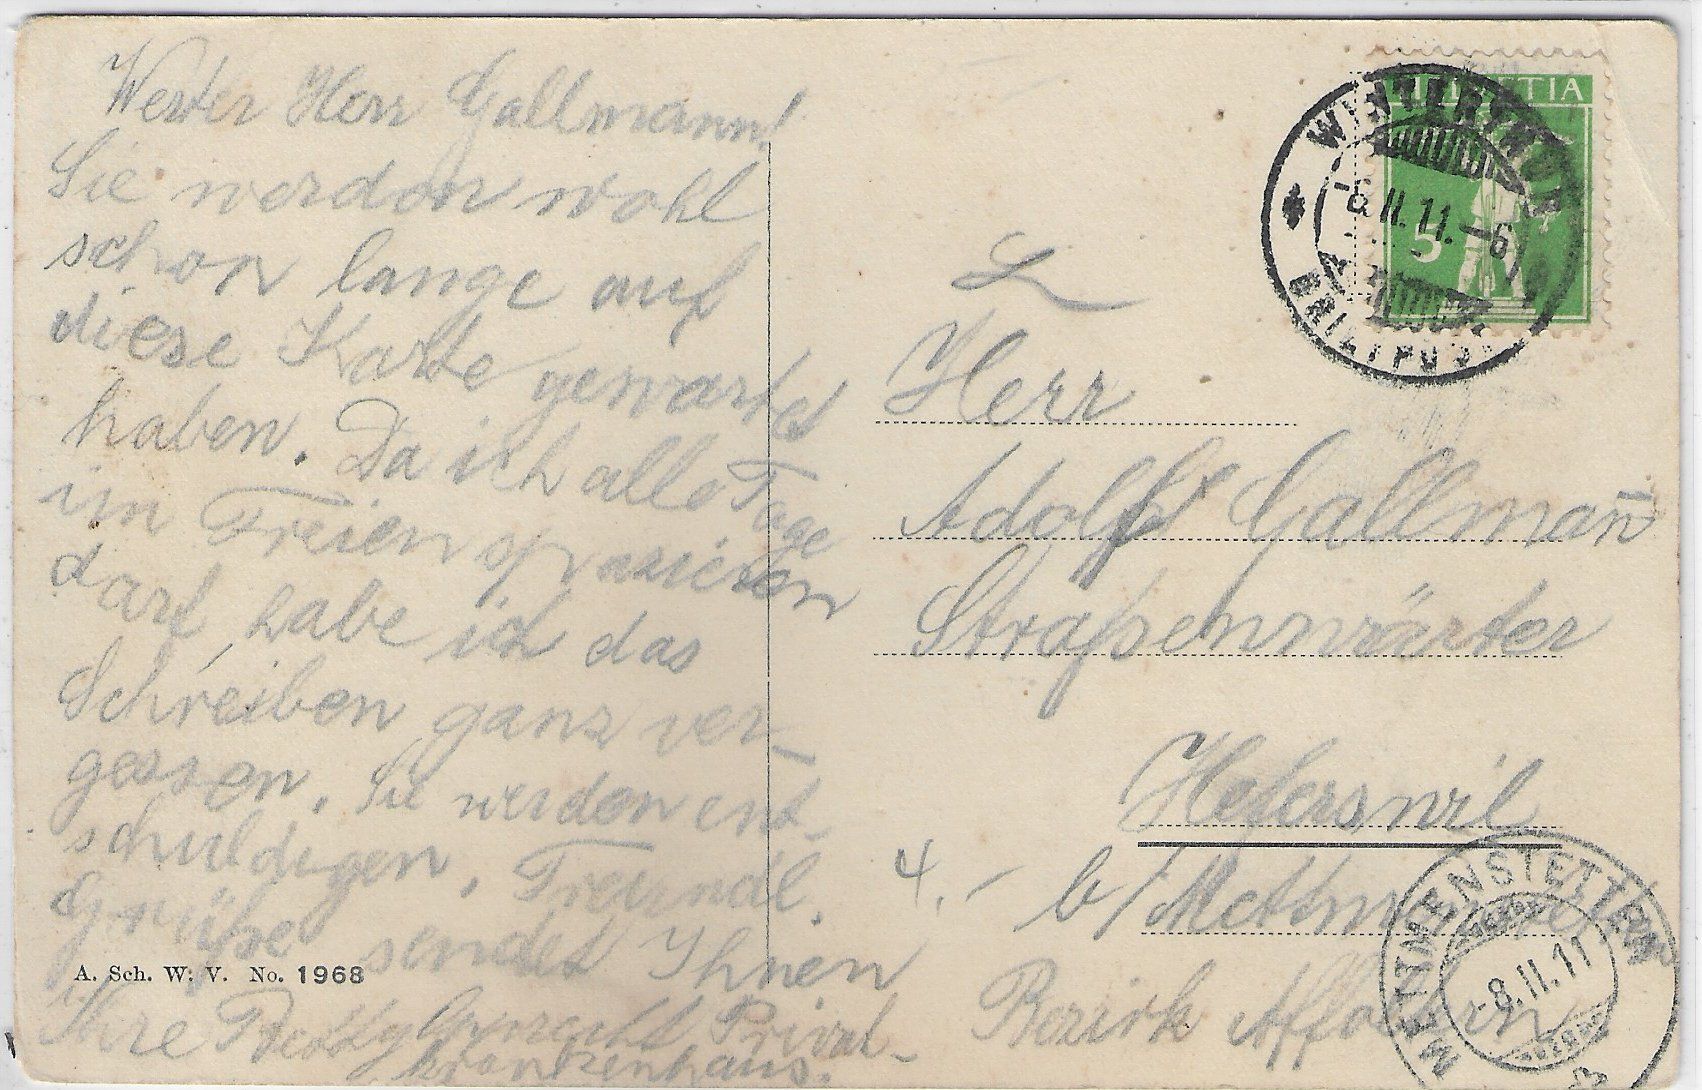 Werter Herr Gallmann!
Sie werden wohl
schon lange auf
diese Karte gewartet
haben. Da ich alle Tage
im Freien spazieren
darf, habe ich das
Schreiben ganz ver-
gessen. Sie werden ent-
schuldigen. Freundl.
Grüße sendet Ihnen
Ihre Privat-
krankenhaus.
A. Sch. W. V. No. 1968
HELVETIA
5
WINTERTHUR
-6.II.11.-6
BRIEFPOST
Herr
Adolf Gallmañ
Straßenwärter
Heferswil
4.- b/ Mettmenstetten
Bezirk Affoltern
METTMENSTETTEN
-8.II.11